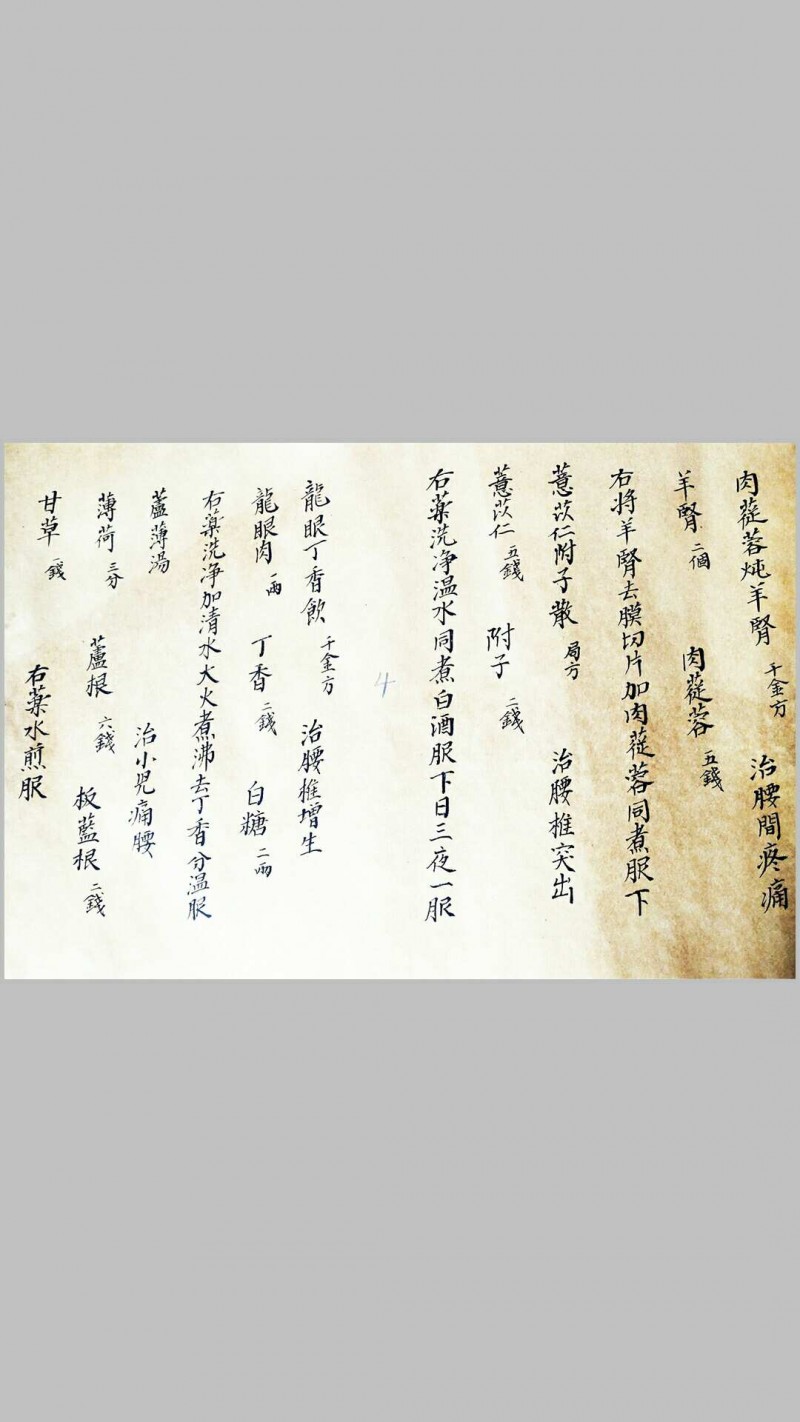 肉蓯蓉炖羊腎 千金方 治腰間疼痛
羊腎 二個 肉蓯蓉 五錢
右將羊腎去膜切片加肉蓯蓉同煮服下
薏苡仁附子散 局方 治腰椎突出
薏苡仁 五錢 附子 二錢
右藥洗净温水同煮白酒服下日三夜一服
4
龍眼丁香飲 千金方 治腰椎增生
龍眼肉 一兩 丁香 二錢 白糖 二兩
右藥洗净加清水大火煮沸去丁香分温服
蘆薄湯 治小兒痛腰
薄荷 三分 蘆根 六錢 板藍根 二錢
甘草 一錢 右藥水煎服